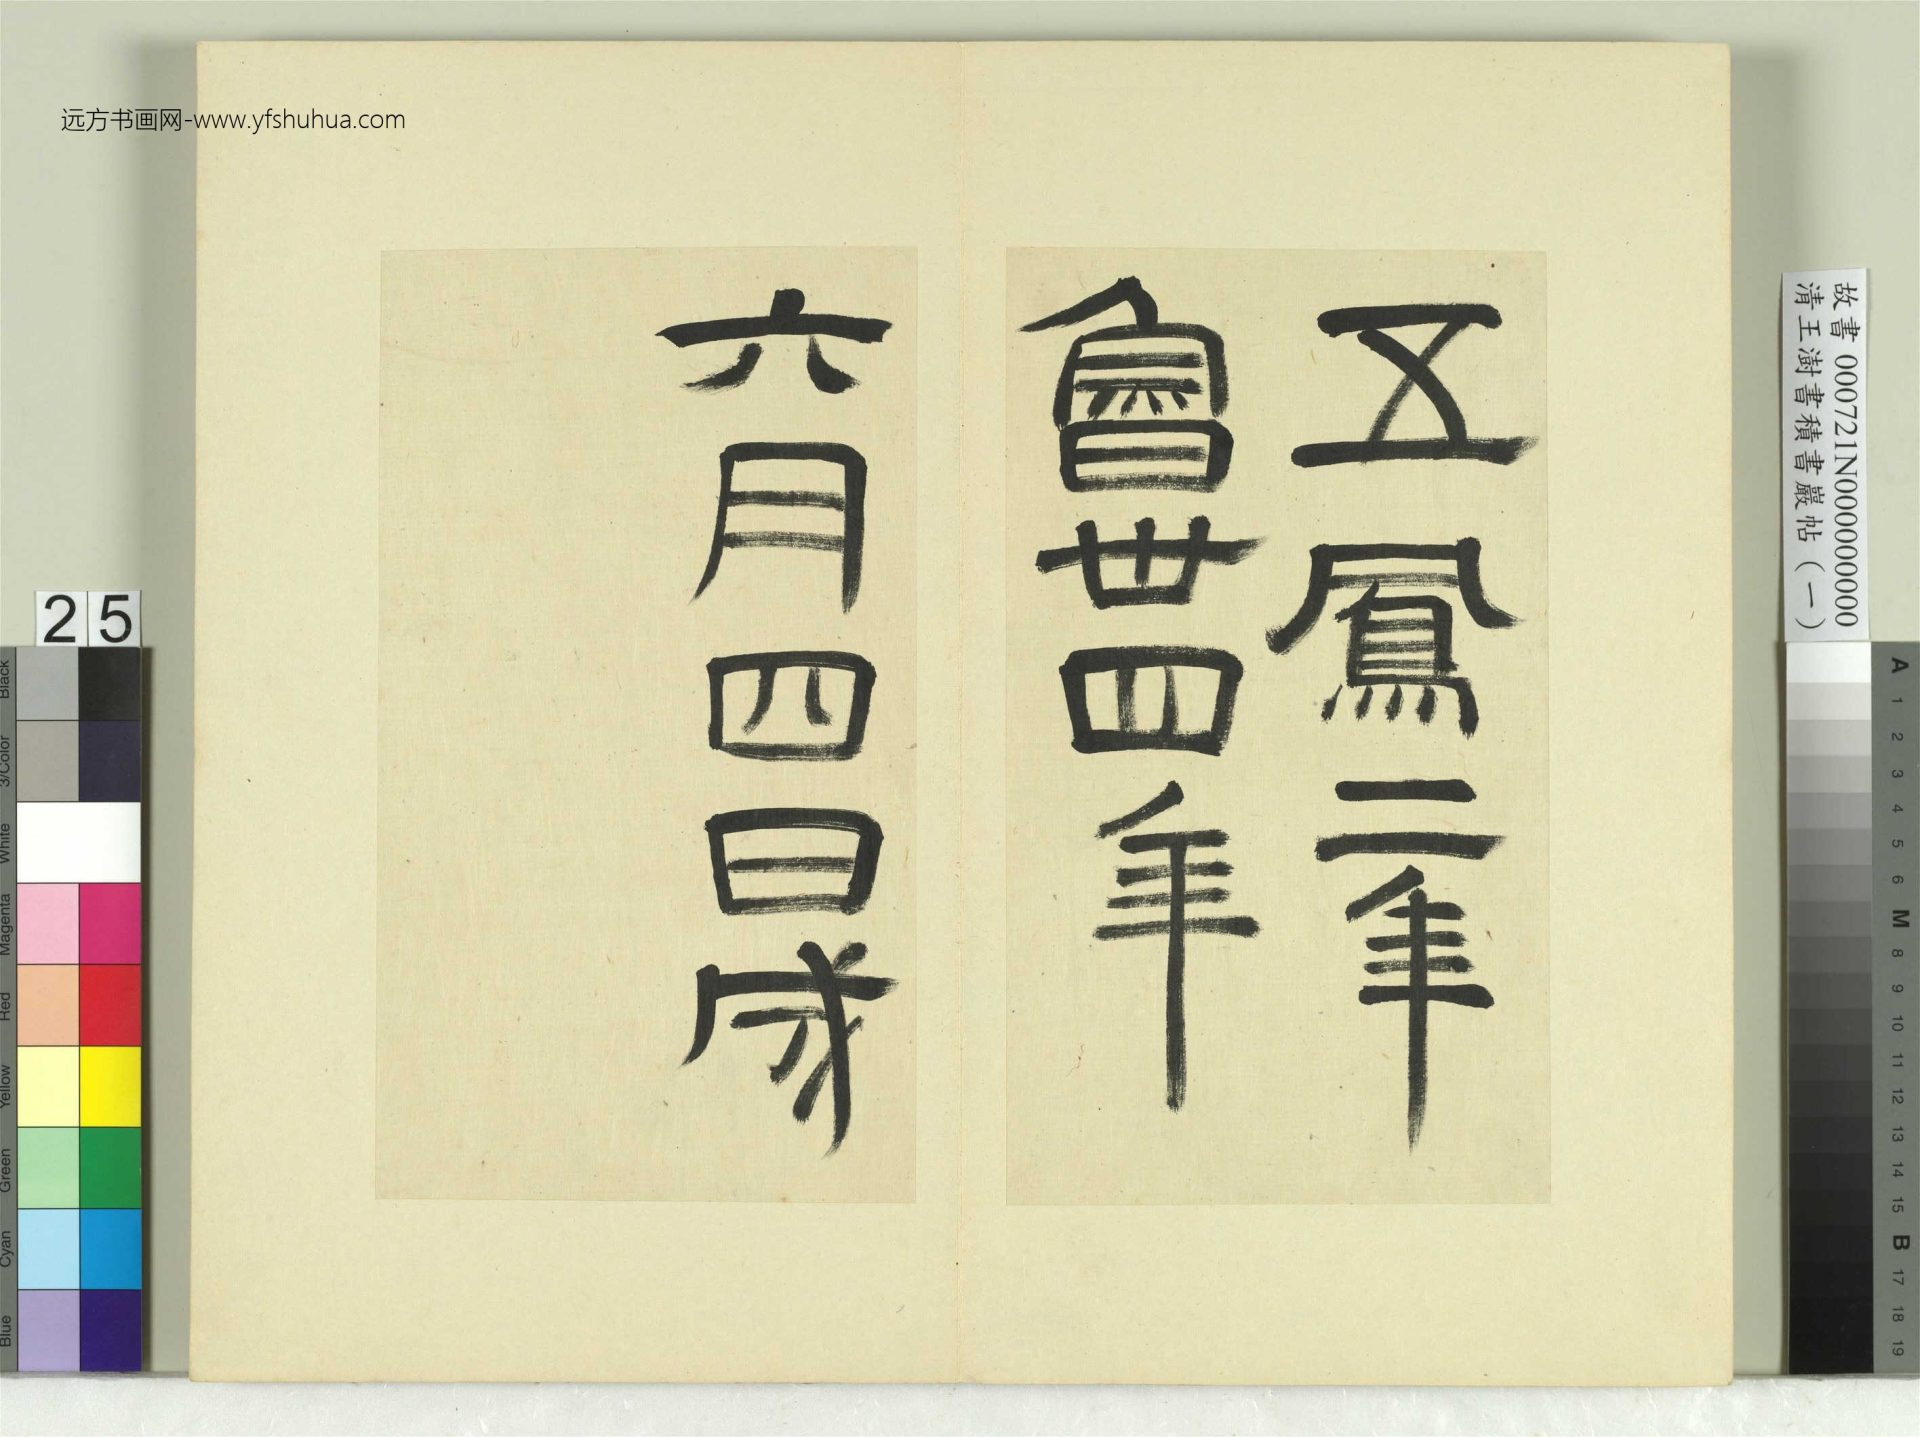 远方书画网-www.yfshuhua.com
五鳳二年
魯卅四年
六月四日成
故書 000721N000000000
清王澍書積書巖帖（一）
25
Black
3/Color
White
Magenta
Red
Yellow
Green
Cyan
Blue
A
1
2
3
4
5
6
M
8
9
10
11
12
13
14
15
B
17
18
19